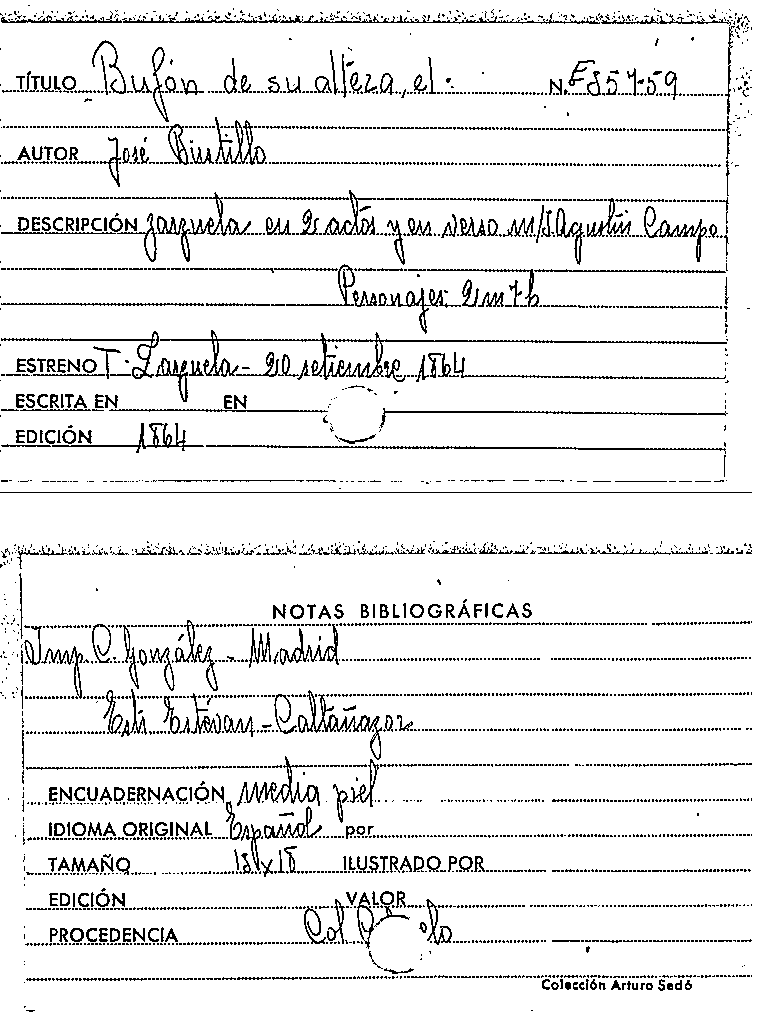 TÍTULO Bufón de su alteza, el. N. E857-59
AUTOR José Bustillo
DESCRIPCIÓN zarzuela en 2 actos y en verso m/J Agustín Campo
Personajes 2m 7h
ESTRENO T. Zarzuela - 20 setiembre 1864
ESCRITA EN EN
EDICIÓN 1864
NOTAS BIBLIOGRÁFICAS
Imp C. González - Madrid
Estr Estévan - Caltañazor
ENCUADERNACIÓN media piel
IDIOMA ORIGINAL Español por
TAMAÑO ILUSTRADO POR
EDICIÓN VALOR
PROCEDENCIA Col
Colección Arturo Sedó